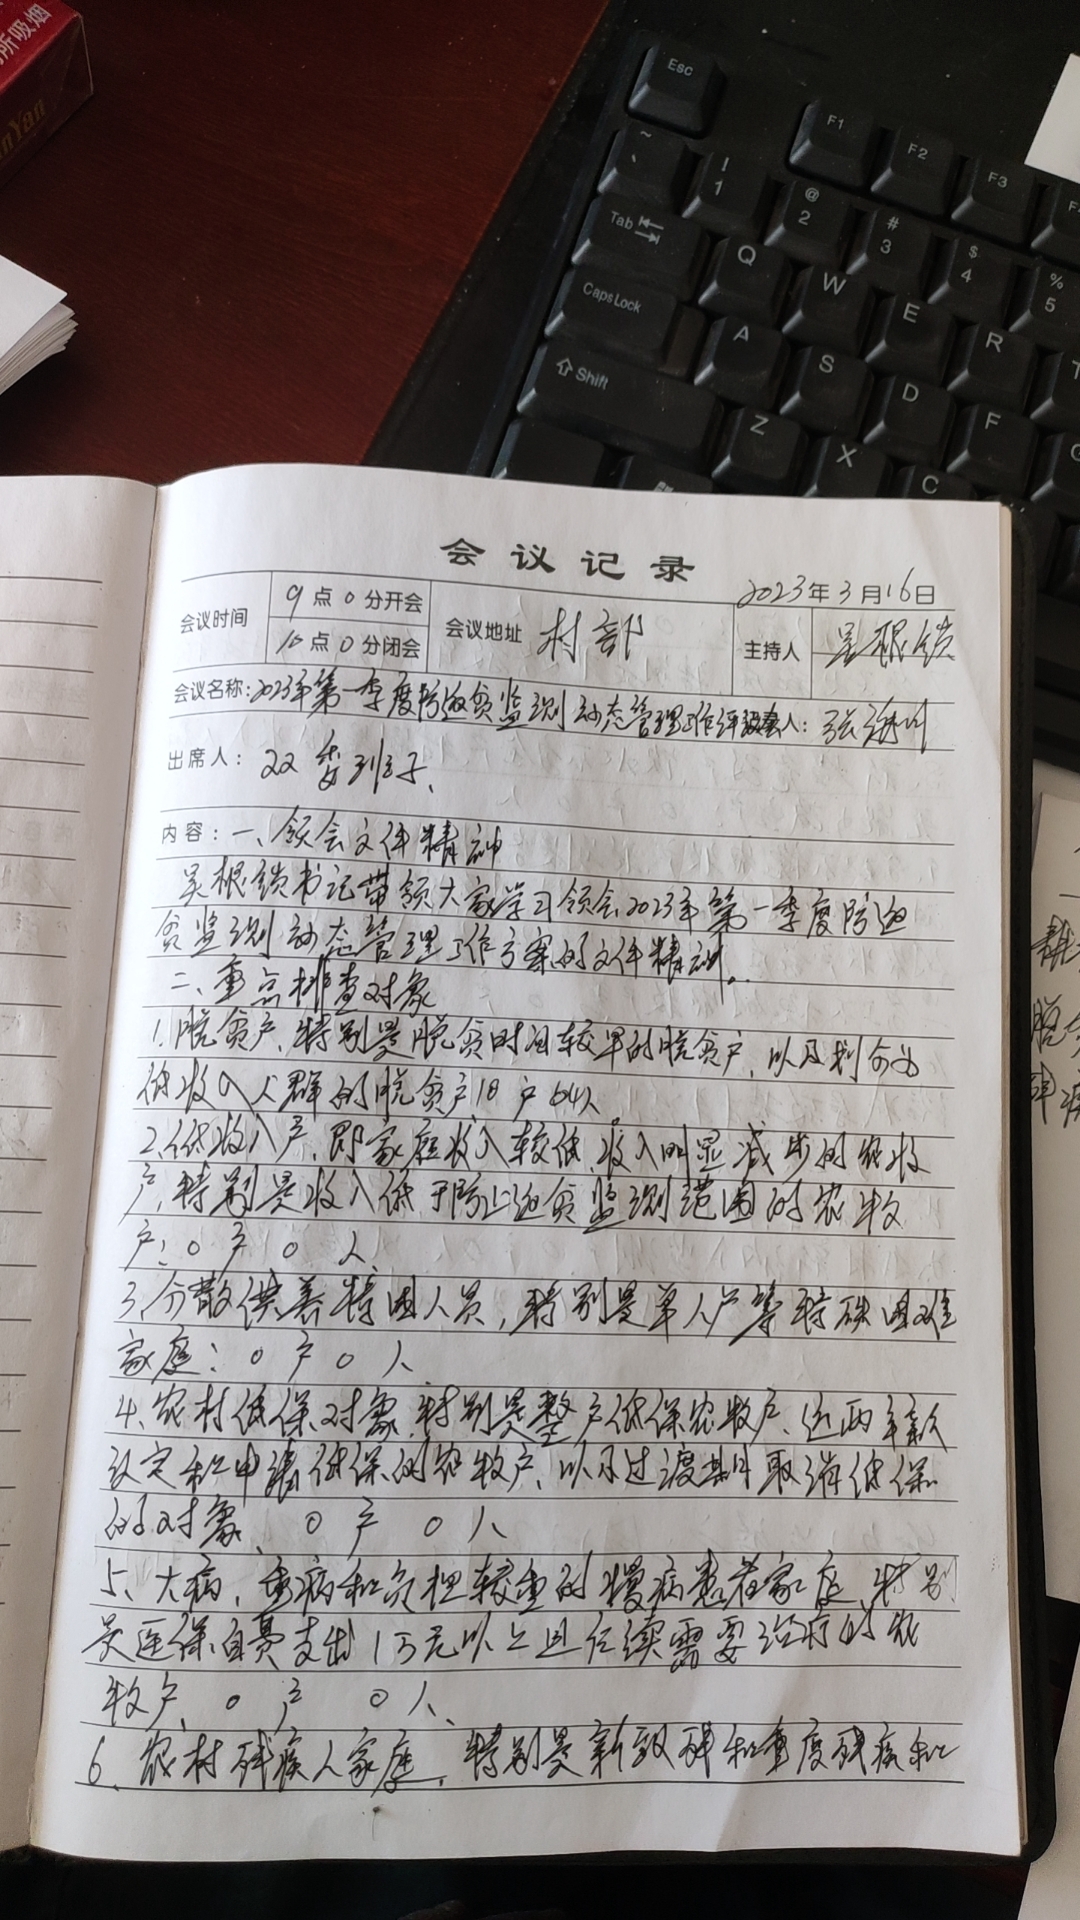 所吸烟
nYan
Esc
F1
F2
F3
~
、
!
1
@
2
#
3
$
4
%
5
Tab
Q
W
E
R
T
CapsLock
A
S
D
F
G
Shift
Z
X
C
会议记录
2023年3月16日
会议时间
9点0分开会
10点0分闭会
会议地址 村部
主持人 吴根锁
会议名称:2023年第一季度防返贫监测动态管理工作评 人: 张
出席人: 双委班子、
内容: 一、领会文件精神
吴根锁书记带领大家学习领会2023年第一季度防返
贫监测动态管理工作方案的文件精神。
二、重点排查对象
1.脱贫户、特别是脱贫时间较早的脱贫户,以及划分为
低收入人群的脱贫户18户64人
2.低收入户,即家庭收入较低、收入明显减少的农牧
户,特别是收入低于防止返贫监测范围的农牧
户:0户0人
3.分散供养特困人员,特别是单人户等特殊困难
家庭:0户0人
4、农村低保对象,特别是整户低保农牧户、近两年新
认定和申请低保的农牧户,以及过渡期取消低保
的对象、0户0人
5、大病,重病和负担较重的慢病患者家庭、特别
是医保自费支出1万元以上且后续需要治疗的农
牧户、0户0人、
6、农村残疾人家庭、特别是新致残和重度残疾和
脱
残疾